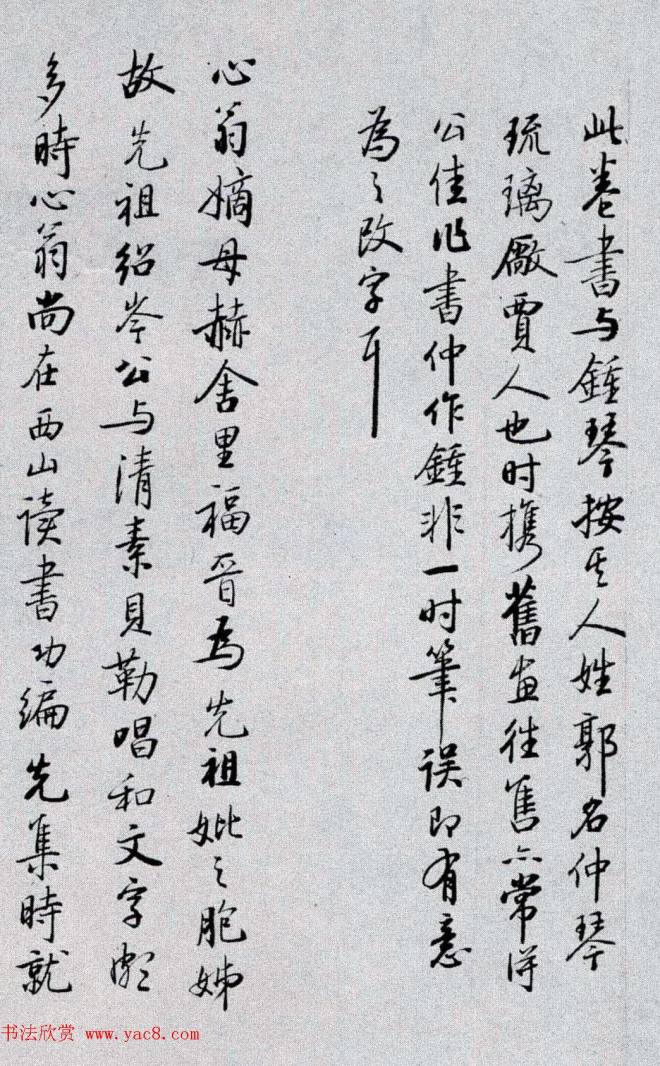 此卷書与鍾琴按其人姓郭名仲琴
琉璃廠賈人也时携舊畫往售亦常得
公佳作書仲作鍾非一时筆误即有意
為之改字耳
心翁嫡母赫舍里福晋為先祖妣之胞姊
故先祖绍岑公与清素貝勒唱和文字頗
多時心翁尚在西山读書功编先集時就
书法欣赏 www.yac8.com